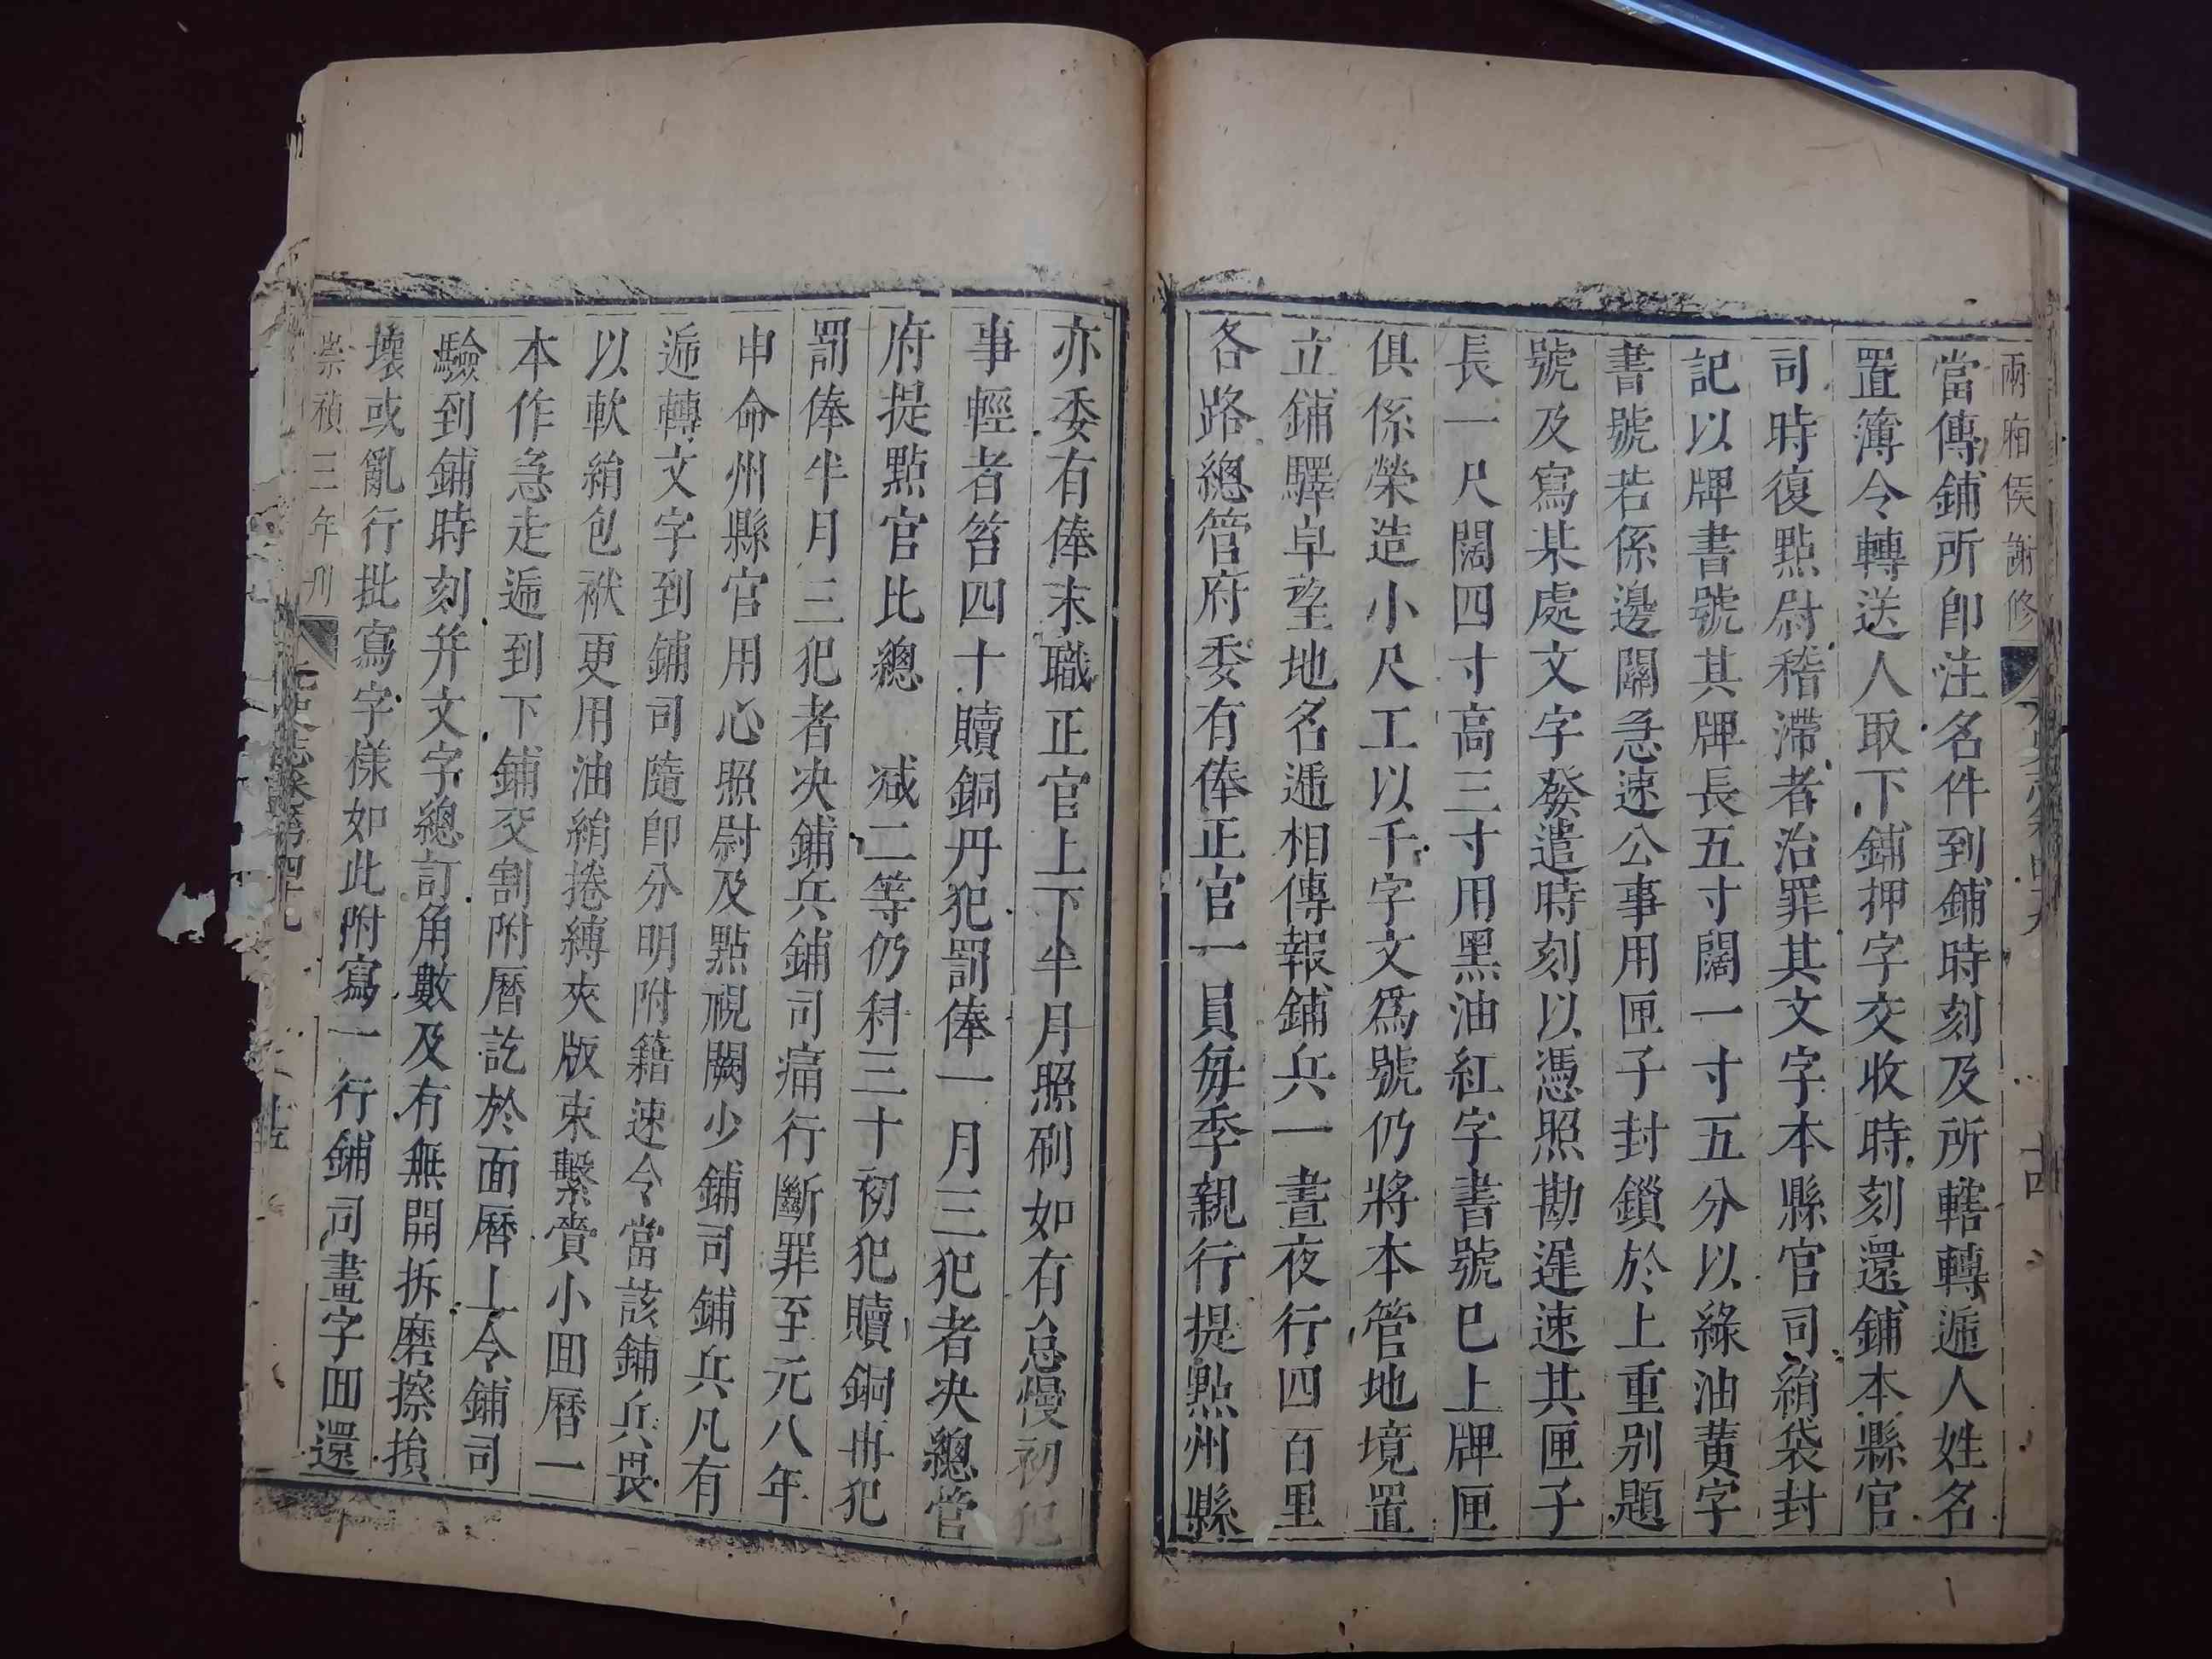 兩廂侯謝修
當傳鋪所卽注名件到鋪時刻及所轄轉遞人姓名
置簿令轉送人取下鋪押字交收時刻還鋪本縣官
司時復點尉稽滯者治罪其文字本縣官司絹袋封
記以牌書號其牌長五寸闊一寸五分以綠油黃字
書號若係邊關急速公事用匣子封鎖於上重別題
號及寫某處文字發遣時刻以憑照勘遲速其匣子
長一尺闊四寸高三寸用黑油紅字書號巳上牌匣
俱係榮造小尺工以千字文爲號仍將本管地境置
立鋪驛卓望地名遞相傳報鋪兵一晝夜行四百里
各路總管府委有俸正官一員每季親行提點州縣
亦委有俸末職正官上下半月照刷如有怠慢初犯
事輕者笞四十贖銅丹犯罰俸一月三犯者決總管
府提點官比總 减二等仍科三十初犯贖銅冉犯
罰俸半月三犯者決鋪兵鋪司痛行斷罪至元八年
申命州縣官用心照尉及點視闕少鋪司鋪兵凡有
遞轉文字到鋪司隨卽分明附籍速令當該鋪兵畏
以軟絹包袱更用油絹捲縛夾版束繫賫小回曆一
本作急走遞到下鋪交割附曆訖於面曆上令鋪司
驗到鋪時刻并文字總訂角數及有無開拆磨擦損
壞或亂行批寫字樣如此附寫一行鋪司畫字回還
崇禎三年刋 元史志卷第四九 十五